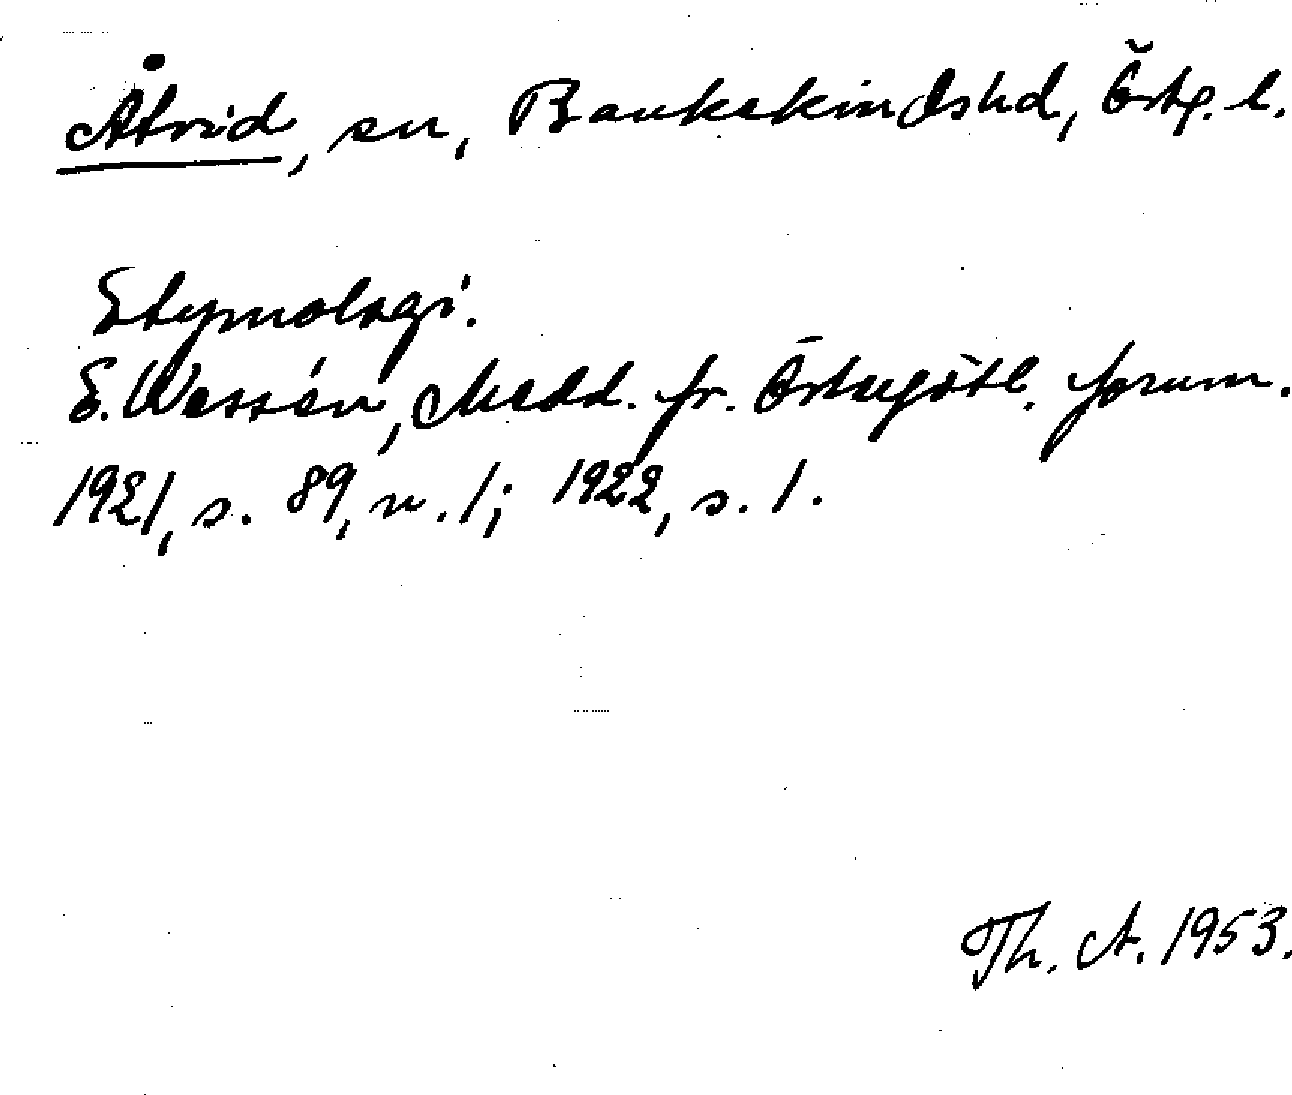 Åtvid, sn, Bankekinds hd, Östg. l.
Etymologi.
E. Wessén, Medd. fr. Östergötl. fornm.
1921, s. 89, n. 1; 1922, s. 1.
Th. A. 1953.